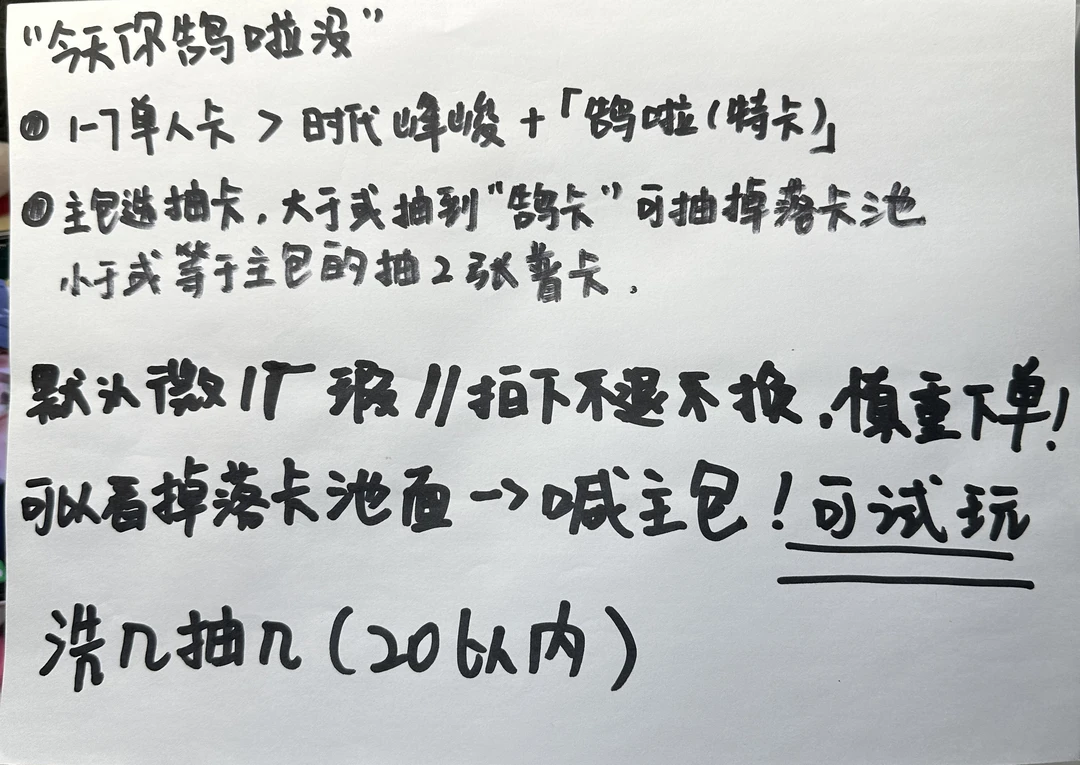 “今天你鸽啦没”
① 1-7单人卡 > 时代峰峻 +「鸽啦(特卡)」
② 主包选抽卡，大于或抽到“鸽卡”可抽掉落卡池
小于或等于主包的抽2张普卡.
默认微//厂瑕//拍下不退不换，慎重下单!
可以看掉落卡池面→喊主包!可试玩
洗几抽几(20以内)